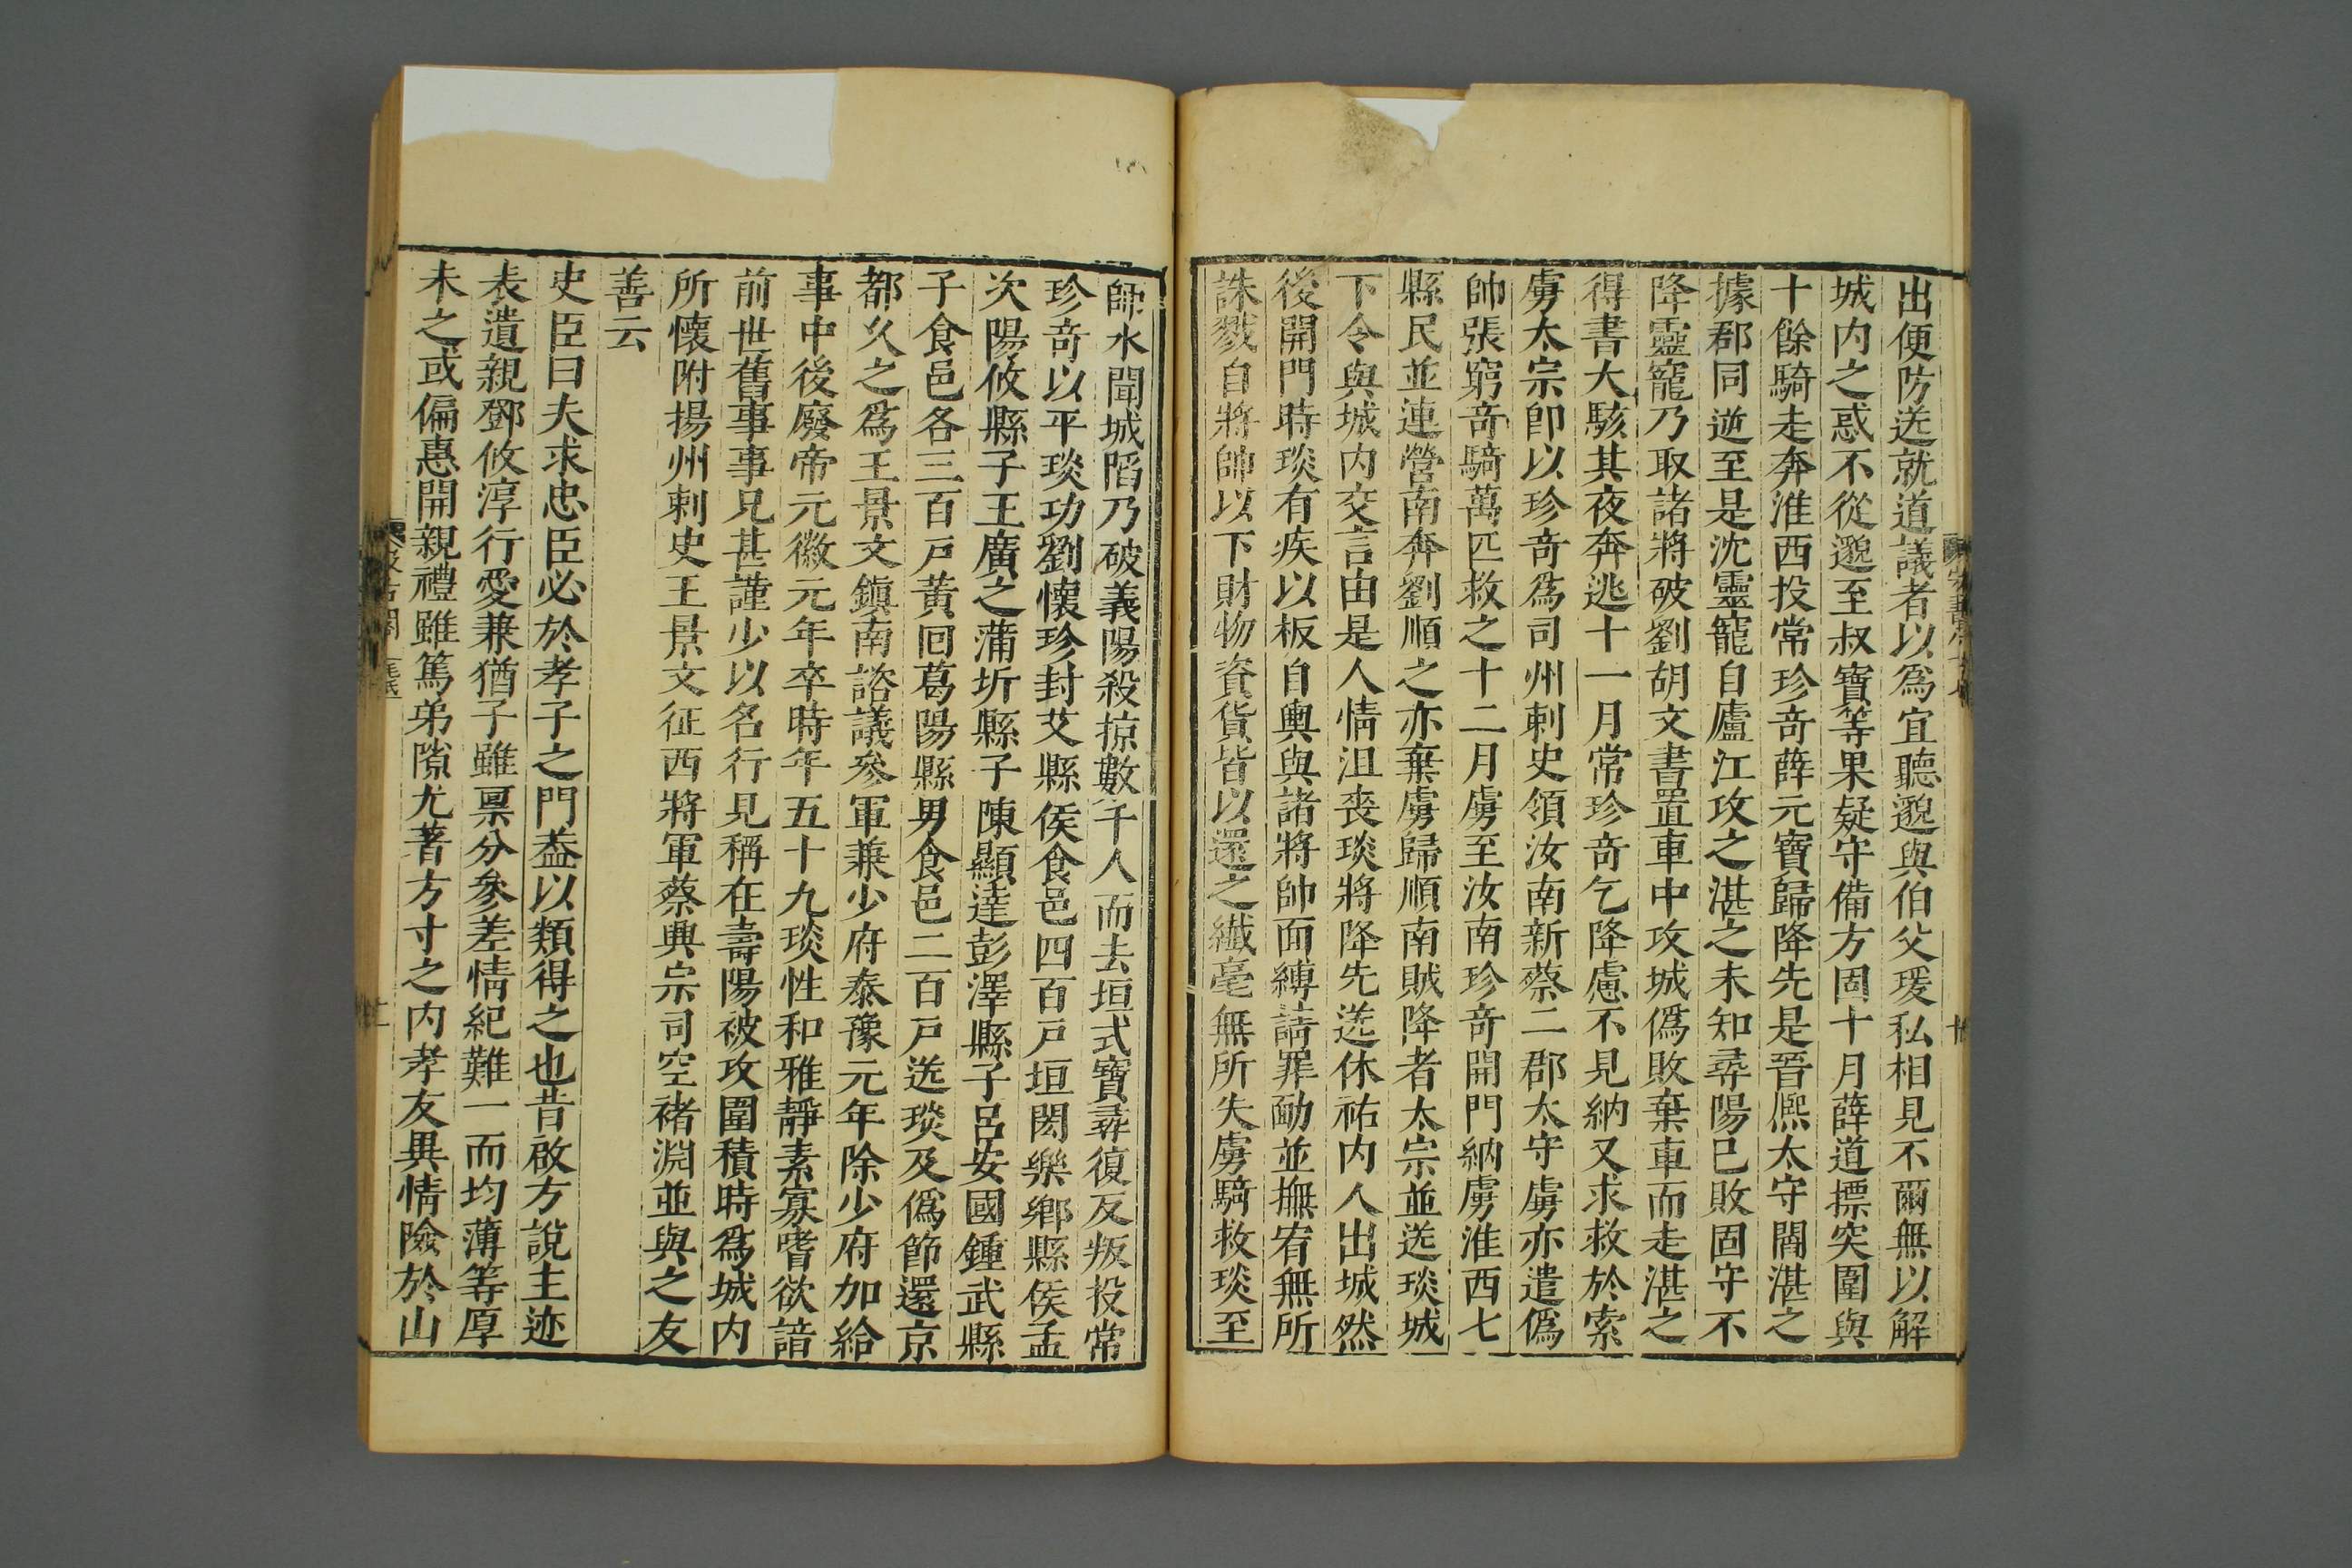 出便防送就道議者以爲宜聽邈與伯父瑗私相見不爾無以解
城内之惑不從邈至叔寶等果疑守備方固十月薛道摽突圍與
十餘騎走奔淮西投常珍奇薛元寶歸降先是晉熈太守閻湛之
據郡同逆至是沈靈寵自廬江攻之湛之未知尋陽已敗固守不
降靈寵乃取諸將破劉胡文書置車中攻城僞敗棄車而走湛之
得書大駭其夜奔逃十一月常珍奇乞降慮不見納又求救於索
虜太宗卽以珍奇爲司州刺史領汝南新蔡二郡太守虜亦遣僞
帥張窮奇騎萬匹救之十二月虜至汝南珍奇開門納虜淮西七
縣民並連營南奔劉順之亦棄虜歸順南賊降者太宗並送琰城
下令與城内交言由是人情沮喪琰將降先送休祐内人出城然
後開門時琰有疾以板自輿與諸將帥面縛請罪勔並撫宥無所
誅戮自將帥以下財物資貨皆以還之纎毫無所失虜騎救琰至
師水聞城陷乃破義陽殺掠數千人而去垣式寶尋復反叛投常
珍奇以平琰功劉懷珍封艾縣侯食邑四百戸垣閎樂鄉縣侯孟
次陽攸縣子王廣之蒲圻縣子陳顯達彭澤縣子呂安國鍾武縣
子食邑各三百戸黄囘葛陽縣男食邑二百戸送琰及僞節還京
都久之爲王景文鎭南諮議參軍兼少府泰豫元年除少府加給
事中後廢帝元徽元年卒時年五十九琰性和雅靜素寡嗜欲諳
前世舊事事兄甚謹少以名行見稱在壽陽被攻圍積時爲城内
所懷附揚州刺史王景文征西將軍蔡興宗司空褚淵並與之友
善云
史臣曰夫求忠臣必於孝子之門葢以類得之也昔啟方說主迹
表遺親鄧攸淳行愛兼猶子雖稟分參差情紀難一而均薄等厚
未之或偏惠開親禮雖篤弟隙尤著方寸之内孝友異情險於山